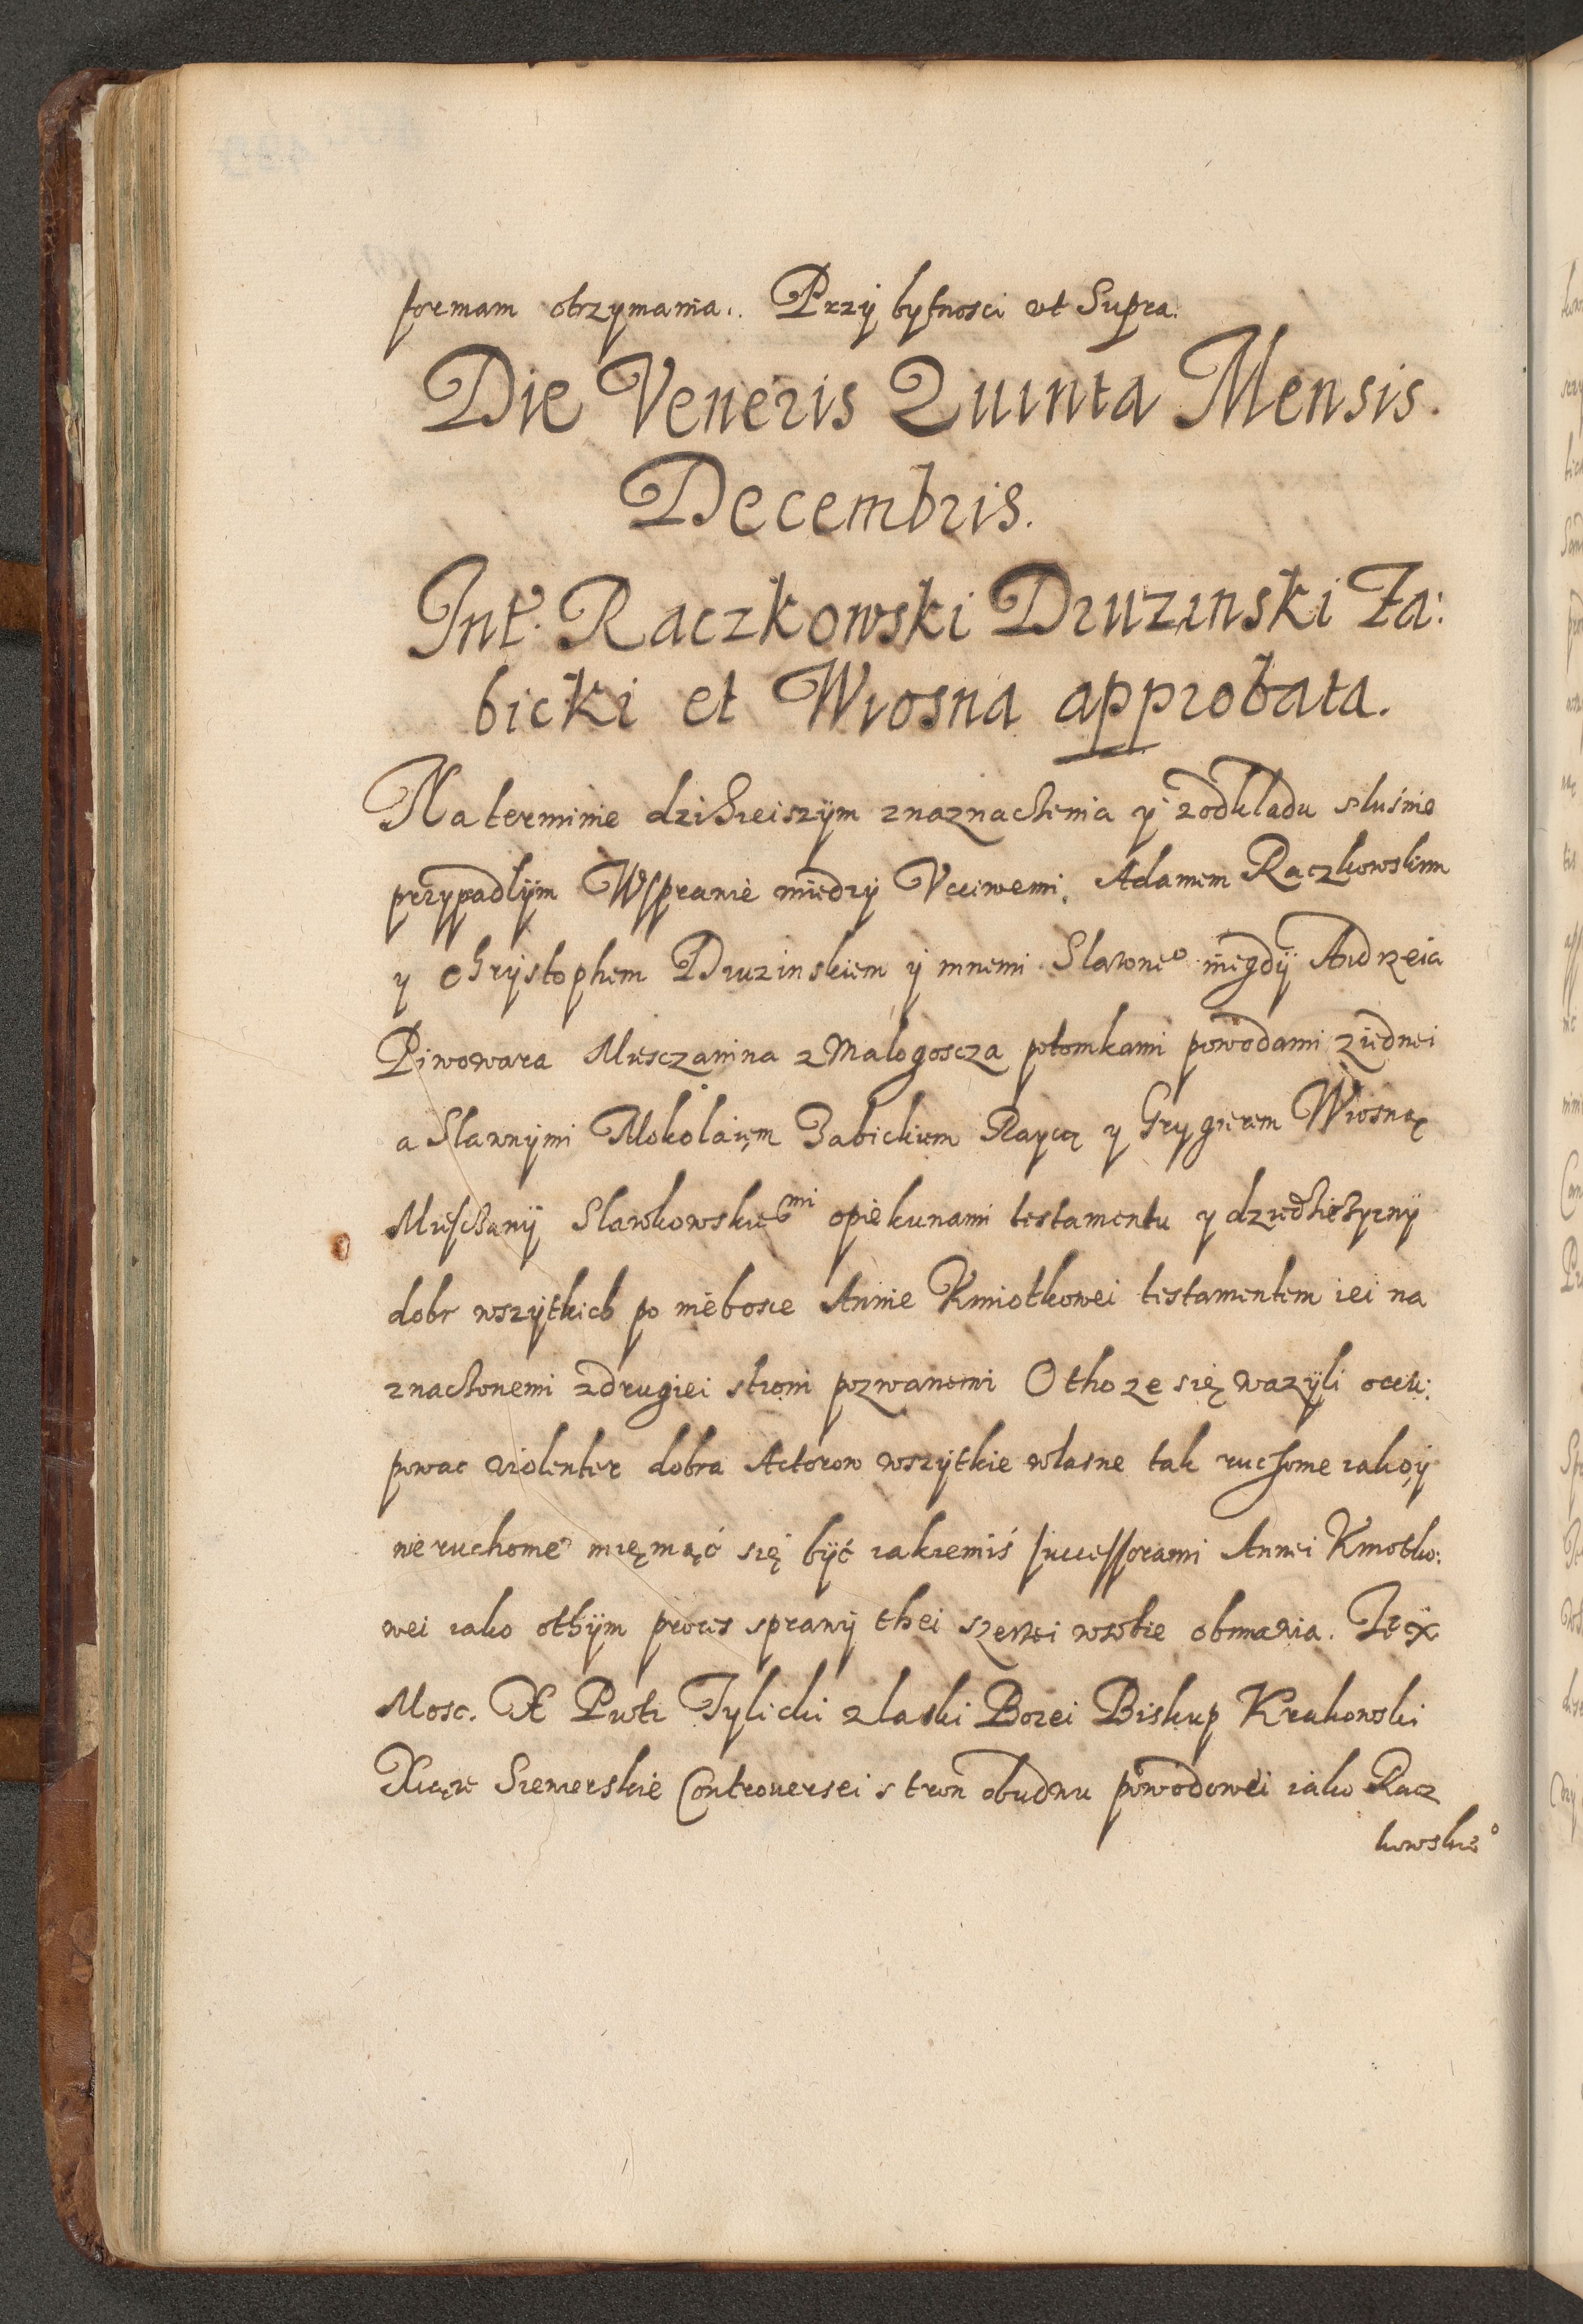 formam otrzymania.. Przÿ bytnosci vt Supra.
Die Veneris Quinta Mensis.
Decembris.
Int. Raczkowski Druzinski Za:
bicki et Wiosna approbata.
Na terminie dzisieiszÿm znaznaczenia ÿ zodkladu słusnie
przypadłÿm Wsprawie miedzÿ Vcciwemi. Adamem Raczkowskim
y Chrÿstophem Druzinskiem ÿ innemi Slawneo niegdÿ Andrzeia
Piwowara Miesczanina zMalogoscza potomkami powodami ziednei
a Slawnÿmi Mokołaięm Zabickiem Raycą y Grygierem Wiosną
Miesczanÿ Slawkowskiemi opiekunami testamentu y dziedzicznÿ
dobr wszÿtkich po niebosce Annie Kmiotkowei testamentem iei na
znaczonemi zdrugiei stroni pozwanemi O tho ze się wazÿli occu:
powac violenter dobra Actorow wszÿtkie własne tak ruchome iakoÿ
nieruchome mięniąć się bÿć iakiemiś successorami Annei Kmotko:
wei iako othÿm proces sprawÿ thei szerzei wsobie obmawia. Iego
Mosc. X Piotr Tylicki zlaski Bozei Biskup Krakowski
Xiąze Siewierskie Controuersei stron obudwu powodowei iako Racz
kowskieo